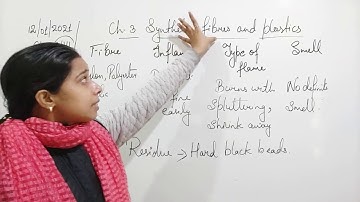 12/01/2021 Ch 3 Synthe fibres and plastics
Fibre Inflam Type of flame Smell
Polyester fire easily Burns with Spluttering, Shrink away No definite Smell
"Residue → Hard black beads.